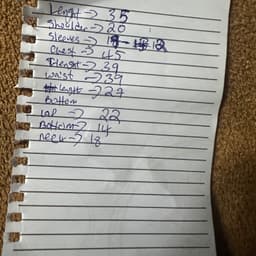 Lenght → 35
Shoulder → 20
Sleeves → 12
Chest → 45
T-lenght → 39
waist → 39
length → 27
Bottom
Lap → 22
Bottom → 14
neck → 18